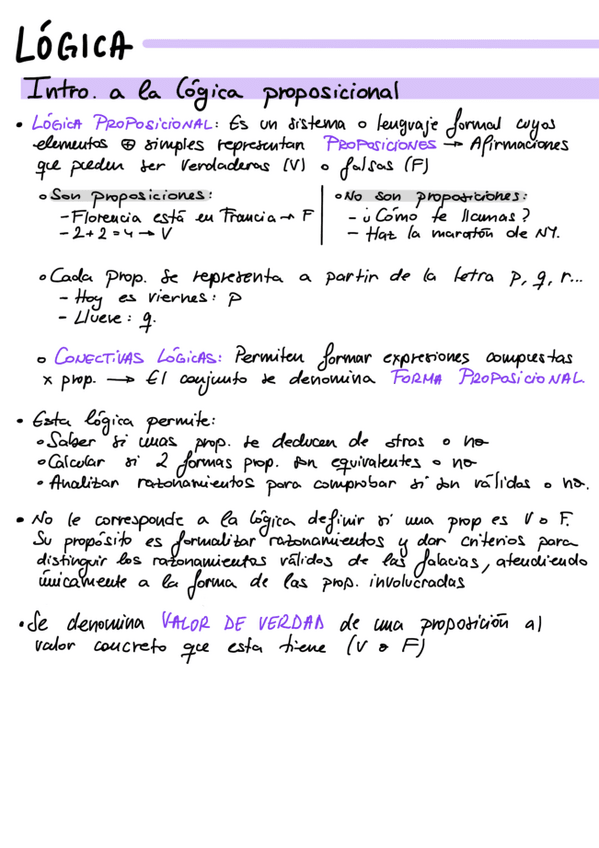 LÓGICA
Intro. a la lógica proposicional
• LÓGICA PROPOSICIONAL: Es un sistema o lenguaje formal cuyos
elementos ⊕ simples representan PROPOSICIONES → Afirmaciones
que pueden ser verdaderas (V) o falsas (F)
o Son proposiciones:
- Florencia está en Francia → F
- 2+2=4 → V
o No son proposiciones:
- ¿Cómo te llamas?
- Haz la maratón de NY.
o Cada prop. se representa a partir de la letra p, q, r...
- Hoy es viernes: p
- Llueve: q.
o CONECTIVAS LÓGICAS: Permiten formar expresiones compuestas
x prop. → El conjunto se denomina FORMA PROPOSICIONAL
• Esta lógica permite:
o Saber si unas prop. se deducen de otras o no
o Calcular si 2 formas prop. son equivalentes o no
• Analizar razonamientos para comprobar si son válidos o no.
• No le corresponde a la lógica definir si una prop es V o F.
Su propósito es formalizar razonamientos y dar criterios para
distinguir los razonamientos válidos de las falacias, atendiendo
únicamente a la forma de las prop. involucradas
• Se denomina VALOR DE VERDAD de una proposición al
valor concreto que esta tiene (V o F)